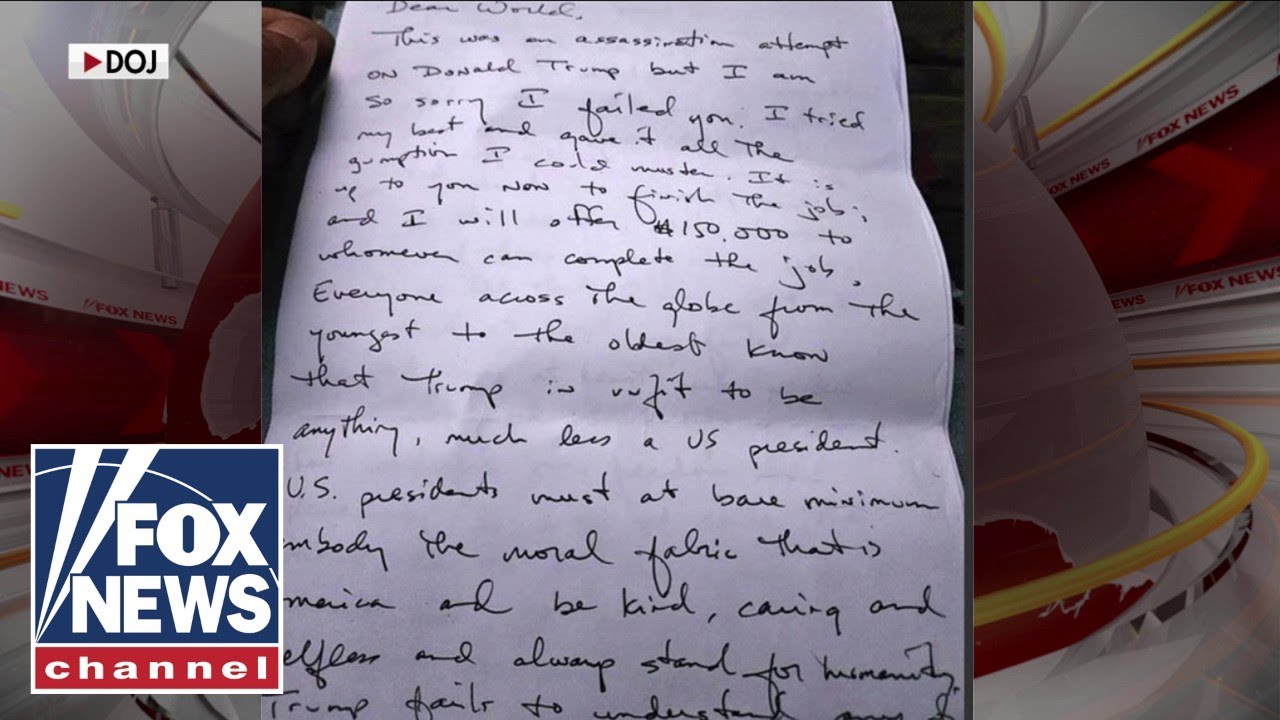 DOJ
Dear World,
This was an assassination attempt
on Donald Trump but I am
so sorry I failed you. I tried
my best and gave it all the
gumption I could muster. It is
up to you now to finish the job;
and I will offer $150,000 to
whomever can complete the job.
Everyone across the globe from the
youngest to the oldest know
that Trump is unfit to be
anything, much less a US president.
U.S. presidents must at bare minimum
mbody the moral fabric that is
merica and be kind, caring and
elfless and always stand for humanity.
Trump fails to understand any of
FOX
NEWS
channel
FOX NEWS
FOX NEWS
NEWS
FOX NEWS
FOX NEWS